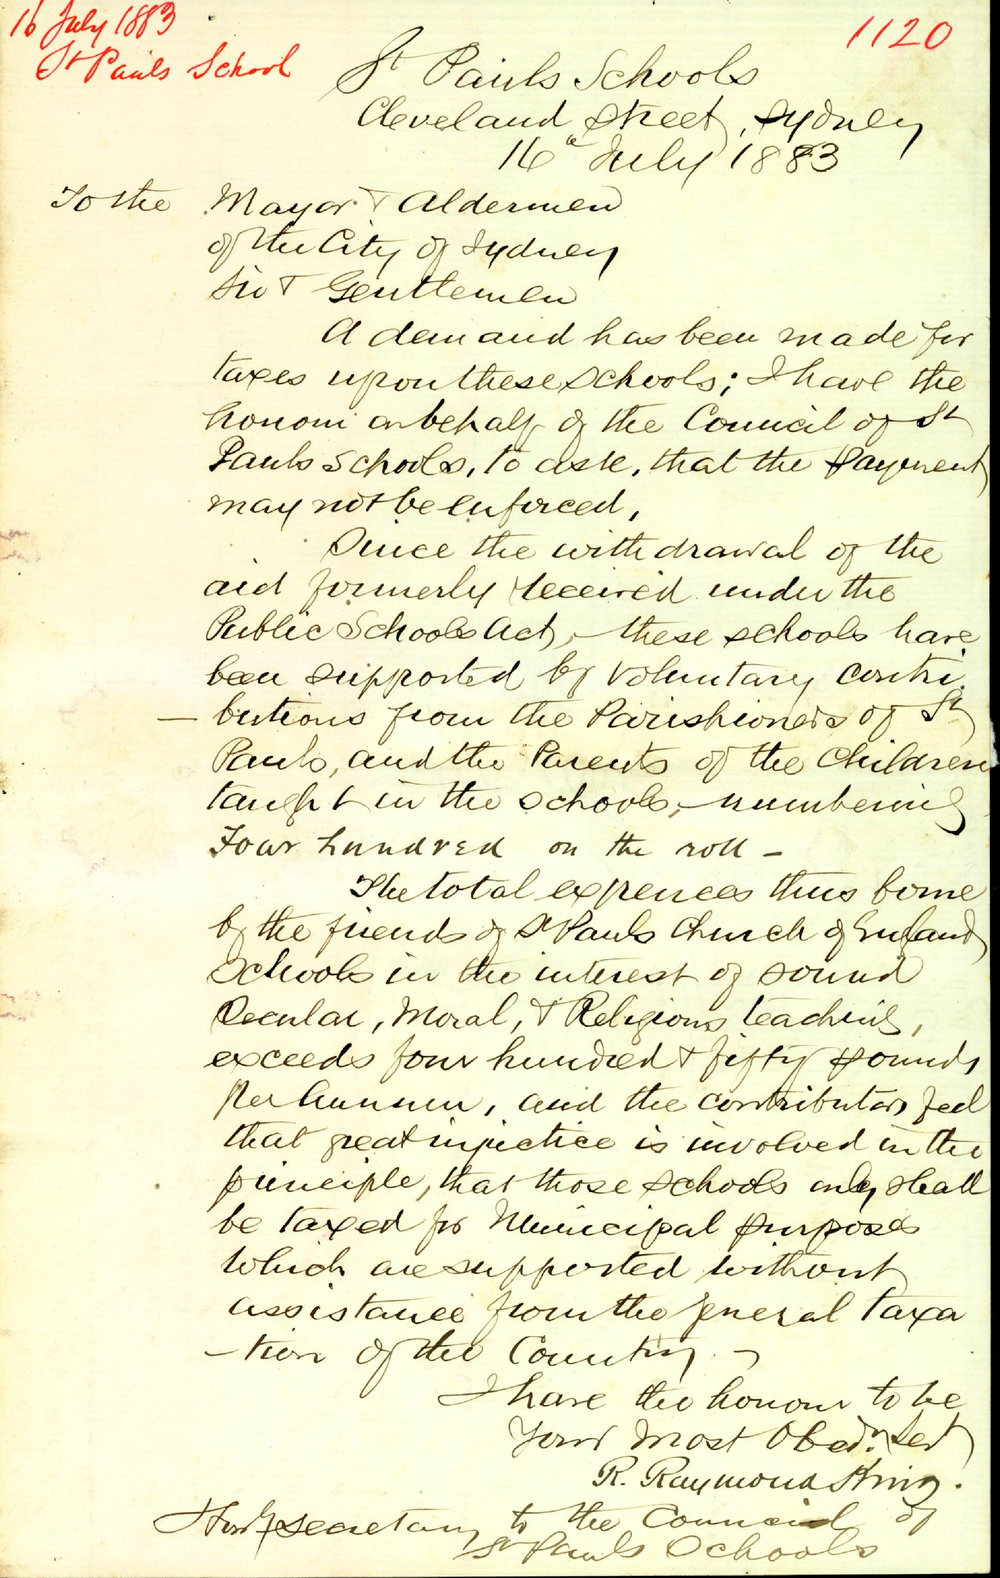 16 July 1883
St Pauls School
1120
St Pauls Schools
Cleveland Street, Sydney
16th July 1883
To the Mayor & Aldermen
of the City of Sydney
Sir & Gentlemen
A demand has been made for
taxes upon these schools; I have the
honour on behalf of the Council of St
Pauls Schools, to ask, that the payment
may not be enforced,
Since the withdrawal of the
aid formerly received under the
Public Schools Act, - these schools have
been supported by voluntary contri
- butions from the Parishioners of St
Pauls, and the Parents of the Children
taught in the schools, - numbering
Four hundred on the roll -
The total expences thus borne
by the friends of St Pauls Church of England
Schools in the interest of sound
Secular, Moral, & Religious teaching,
exceeds four hundred & fifty pounds
per Annum, and the contributors feel
that great injustice is involved in the
principle, that those schools only shall
be taxed for Municipal purposes
which are supported without
assistance from the general taxa
- tion of the Country. -
I have the honour to be
Your Most Obedt Sert
R. Raymond King.
Hony Secretary to the Council of
St Pauls Schools